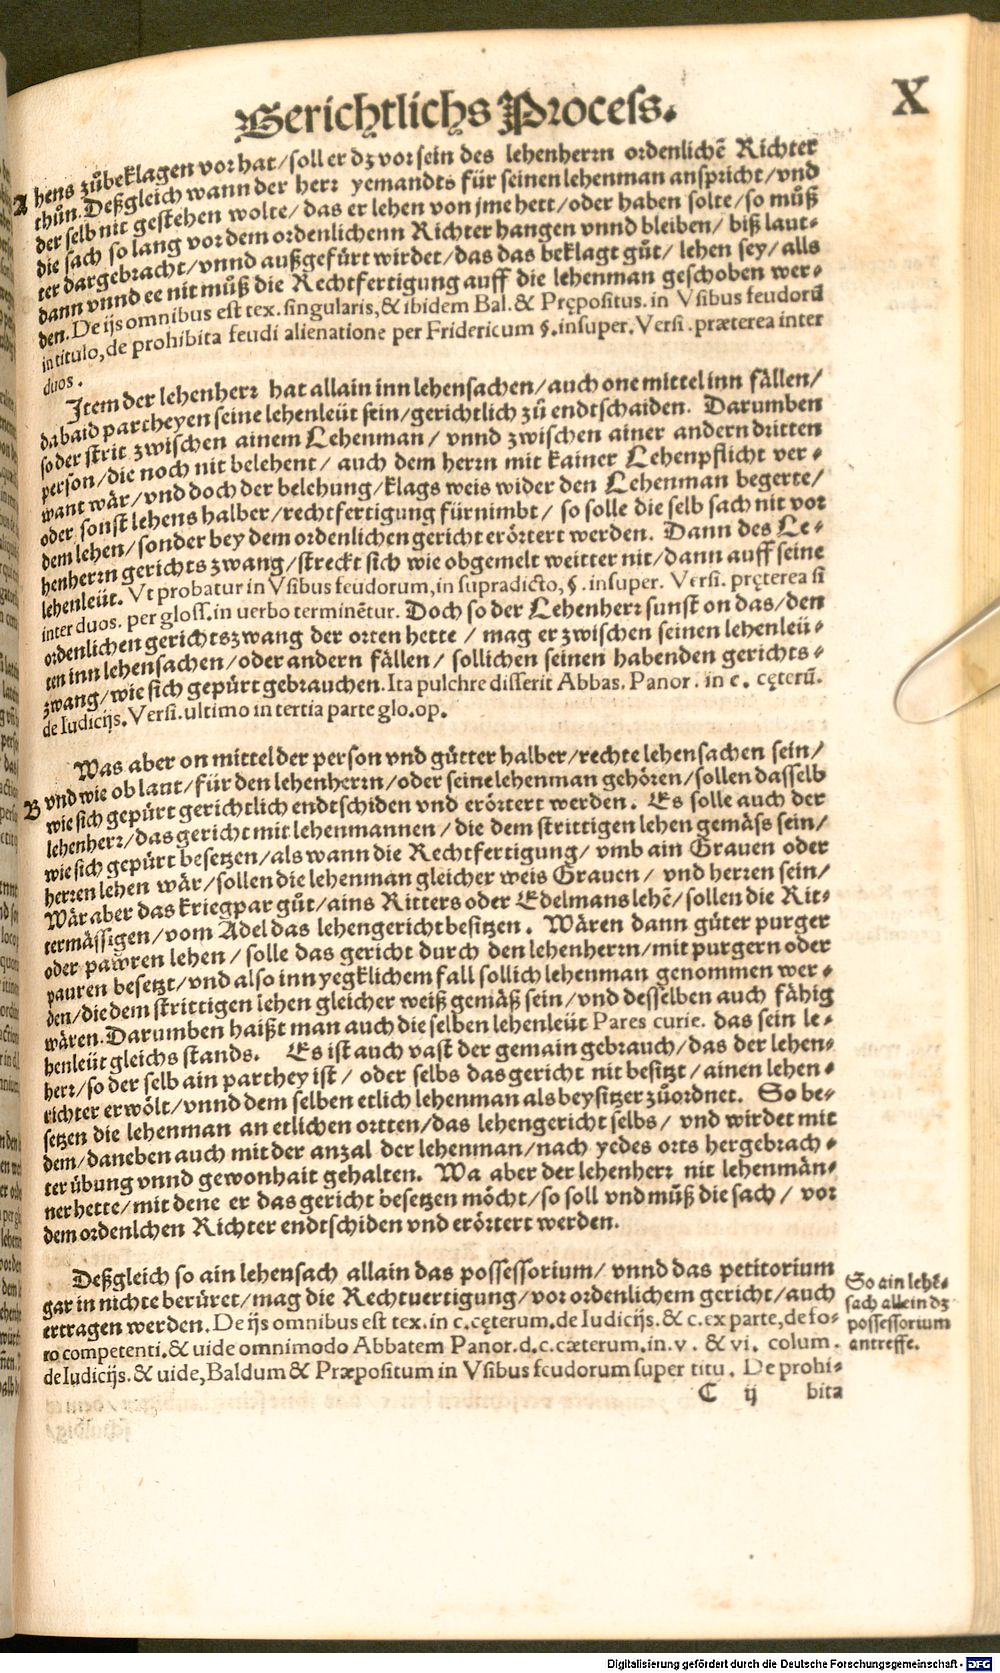 Gerichtlichs Process.
X
A
hens zůbeklagen vor hat/ soll er dz vor sein des lehenherrn ordenlichẽ Richter
thůn. Deßgleich wann der herr yemandts für seinen lehenman anspricht/ vnd
der selb nit gestehen wolte/ das er lehen von jme hett/ oder haben solte/ so můß
die sach so lang vor dem ordenlichenn Richter hangen vnnd bleiben/ biß laut-
ter dargebracht/ vnnd außgefürt wirdet/ das das beklagt gůt/ lehen sey/ alls
dann vnnd ee nit můß die Rechtfertigung auff die lehenman geschoben wer-
den. De ijs omnibus est tex. singularis, & ibidem Bal. & Prępositus. in Vsibus feudorũ
in titulo, de prohibita feudi alienatione per Fridericum §. insuper. Versi. præterea inter
duos.
Item der lehenherr hat allain inn lehensachen/ auch one mittel inn fällen/
da baid partheyen seine lehenleüt sein/ gerichtlich zů endtschaiden. Darumben
so der strit zwischen ainem Lehenman/ vnnd zwischen ainer andern dritten
person/ die noch nit belehent/ auch dem herrn mit kainer Lehenpflicht ver-
want wär/ vnd doch der belehung/ klags weis wider den Lehenman begerte/
oder sonst lehens halber/ rechtfertigung fürnimbt/ so solle die selb sach nit vor
dem lehen/ sonder bey dem ordenlichen gericht erörtert werden. Dann des Le-
henherrn gerichts zwang/ streckt sich wie obgemelt weitter nit/ dann auff seine
lehenleüt. Vt probatur in Vsibus feudorum, in supradicto, §. insuper. Versi. pręterea si
inter duos. per gloss. in uerbo terminẽtur. Doch so der Lehenherr sunst on das/ den
ordenlichen gerichtszwang der orten hette / mag er zwischen seinen lehenleü-
ten inn lehensachen/ oder andern fällen/ sollichen seinen habenden gerichts-
zwang/ wie sich gepürt gebrauchen. Ita pulchre disserit Abbas. Panor. in c. cęterũ.
de Iudicijs. Versi. ultimo in tertia parte glo. op.
Was aber on mittel der person vnd gütter halber/ rechte lehensachen sein/
B
vnd wie ob laut/ für den lehenherrn/ oder seine lehenman gehören/ sollen dasselb
wie sich gepürt gerichtlich endtschiden vnd erörtert werden. Es solle auch der
lehenherr/ das gericht mit lehenmannen/ die dem strittigen lehen gemäss sein/
wie sich gepürt besetzen/ als wann die Rechtfertigung/ vmb ain Grauen oder
herren lehen wär/ sollen die lehenman gleicher weis Grauen/ vnd herren sein/
Wär aber das kriegpar gůt/ ains Ritters oder Edelmans lehẽ/ sollen die Rit-
termässigen/ vom Adel das lehengericht besitzen. Wären dann güter purger
oder pawren lehen/ solle das gericht durch den lehenherrn/ mit purgern oder
pauren besetzt/ vnd also inn yegklichem fall sollich lehenman genommen wer-
den/ die dem strittigen lehen gleicher weiß gemäß sein/ vnd desselben auch fähig
wären. Darumben haißt man auch die selben lehenleüt Pares curie. das sein le-
henleüt gleichs stands. Es ist auch vast der gemain gebrauch/ das der lehen-
herr/ so der selb ain parthey ist/ oder selbs das gericht nit besitzt/ ainen lehen-
richter erwölt/ vnnd dem selben etlich lehenman als beysitzer zůordnet. So be-
setzen die lehenman an etlichen ortten/ das lehengericht selbs/ vnd wirdet mit
dem/ daneben auch mit der anzal der lehenman/ nach yedes orts hergebrach-
ter übung vnnd gewonhait gehalten. Wa aber der lehenherr nit lehenmän-
ner hette/ mit dene er das gericht besetzen möcht/ so soll vnd můß die sach/ vor
dem ordenlchen Richter endtschiden vnd erörtert werden.
Deßgleich so ain lehensach allain das possessorium/ vnnd das petitorium
gar in nichte berüret/ mag die Rechtuertigung/ vor ordenlichem gericht/ auch
ertragen werden. De ijs omnibus est tex. in c. cęterum. de Iudicijs. & c. ex parte, de fo-
ro competenti. & uide omnimodo Abbatem Panor. d. c. cæterum. in. v. & vi. colum.
de Iudicijs. & uide, Baldum & Præpositum in Vsibus feudorum super titu. De prohi-
So ain lehẽ-
sach allein dz
possessorium
antreffe.
C ij bita
Digitalisierung gefördert durch die Deutsche Forschungsgemeinschaft - DFG